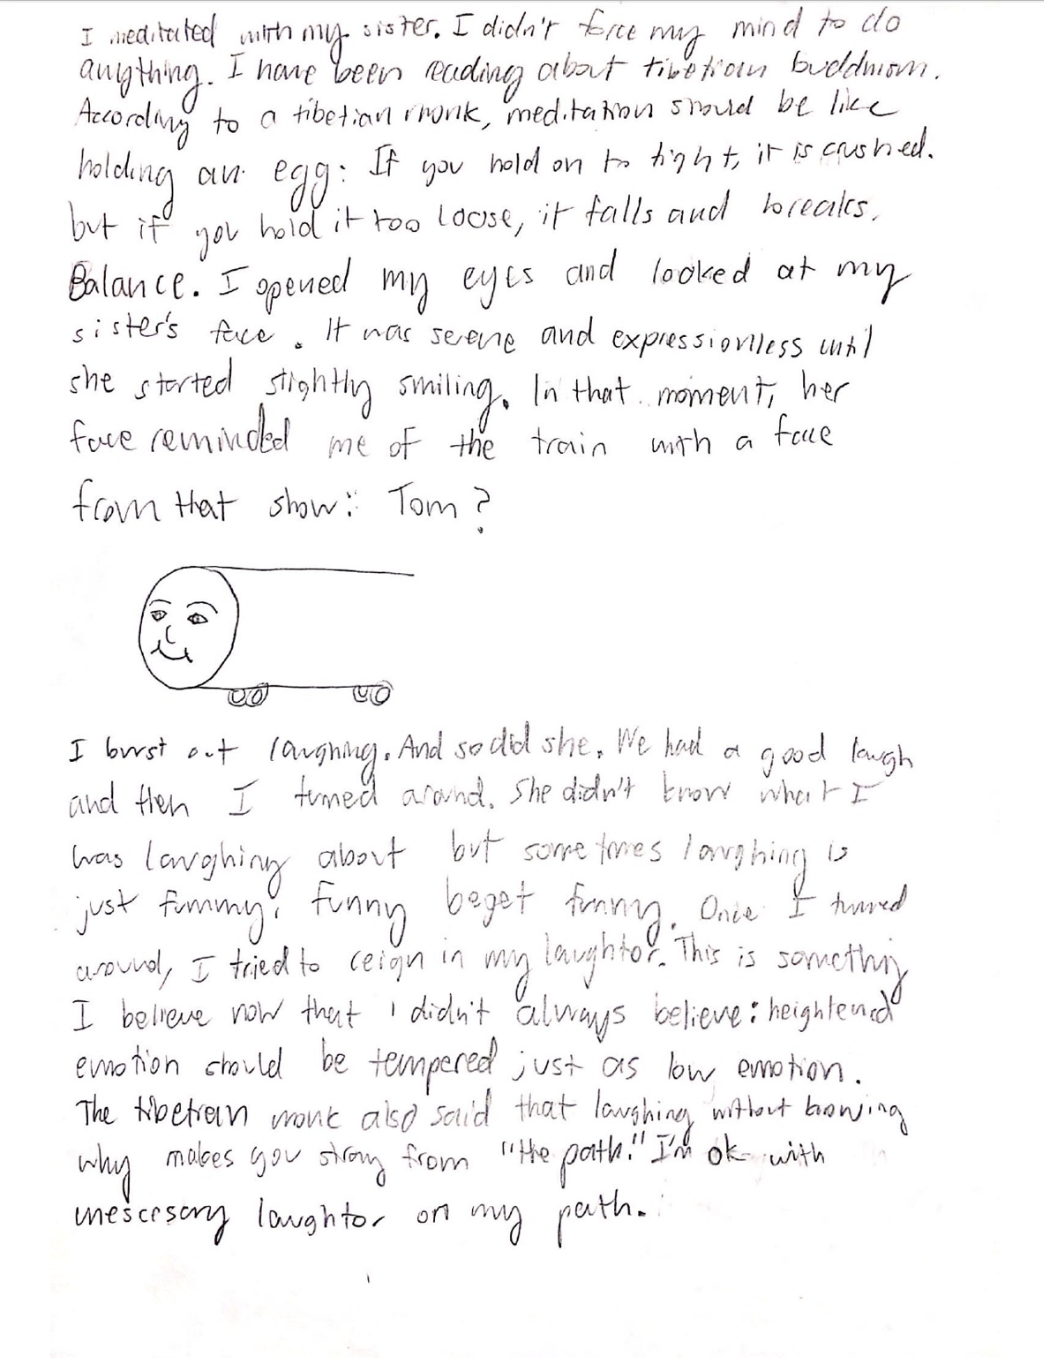 I meditated with my sister. I didn't force my mind to do
anything. I have been reading about tibetian buddhism.
According to a tibetian monk, meditation should be like
holding an egg: If you hold on to tight, it is crushed.
but if you hold it too loose, it falls and breaks.
Balance. I opened my eyes and looked at my
sister's face. It was serene and expressionless until
she started slightly smiling. In that moment, her
face reminded me of the train with a face
from that show: Tom?
I burst out laughing. And so did she. We had a good laugh
and then I turned around. She didn't know what I
was laughing about but sometimes laughing is
just funny; funny beget funny. Once I turned
around, I tried to reign in my laughtor. This is something
I believe now that I didn't always believe: heightened
emotion should be tempered just as low emotion.
The tibetian monk also said that laughing without knowing
why makes you stray from "the path." I'm ok with
unescesary laughtor on my path.